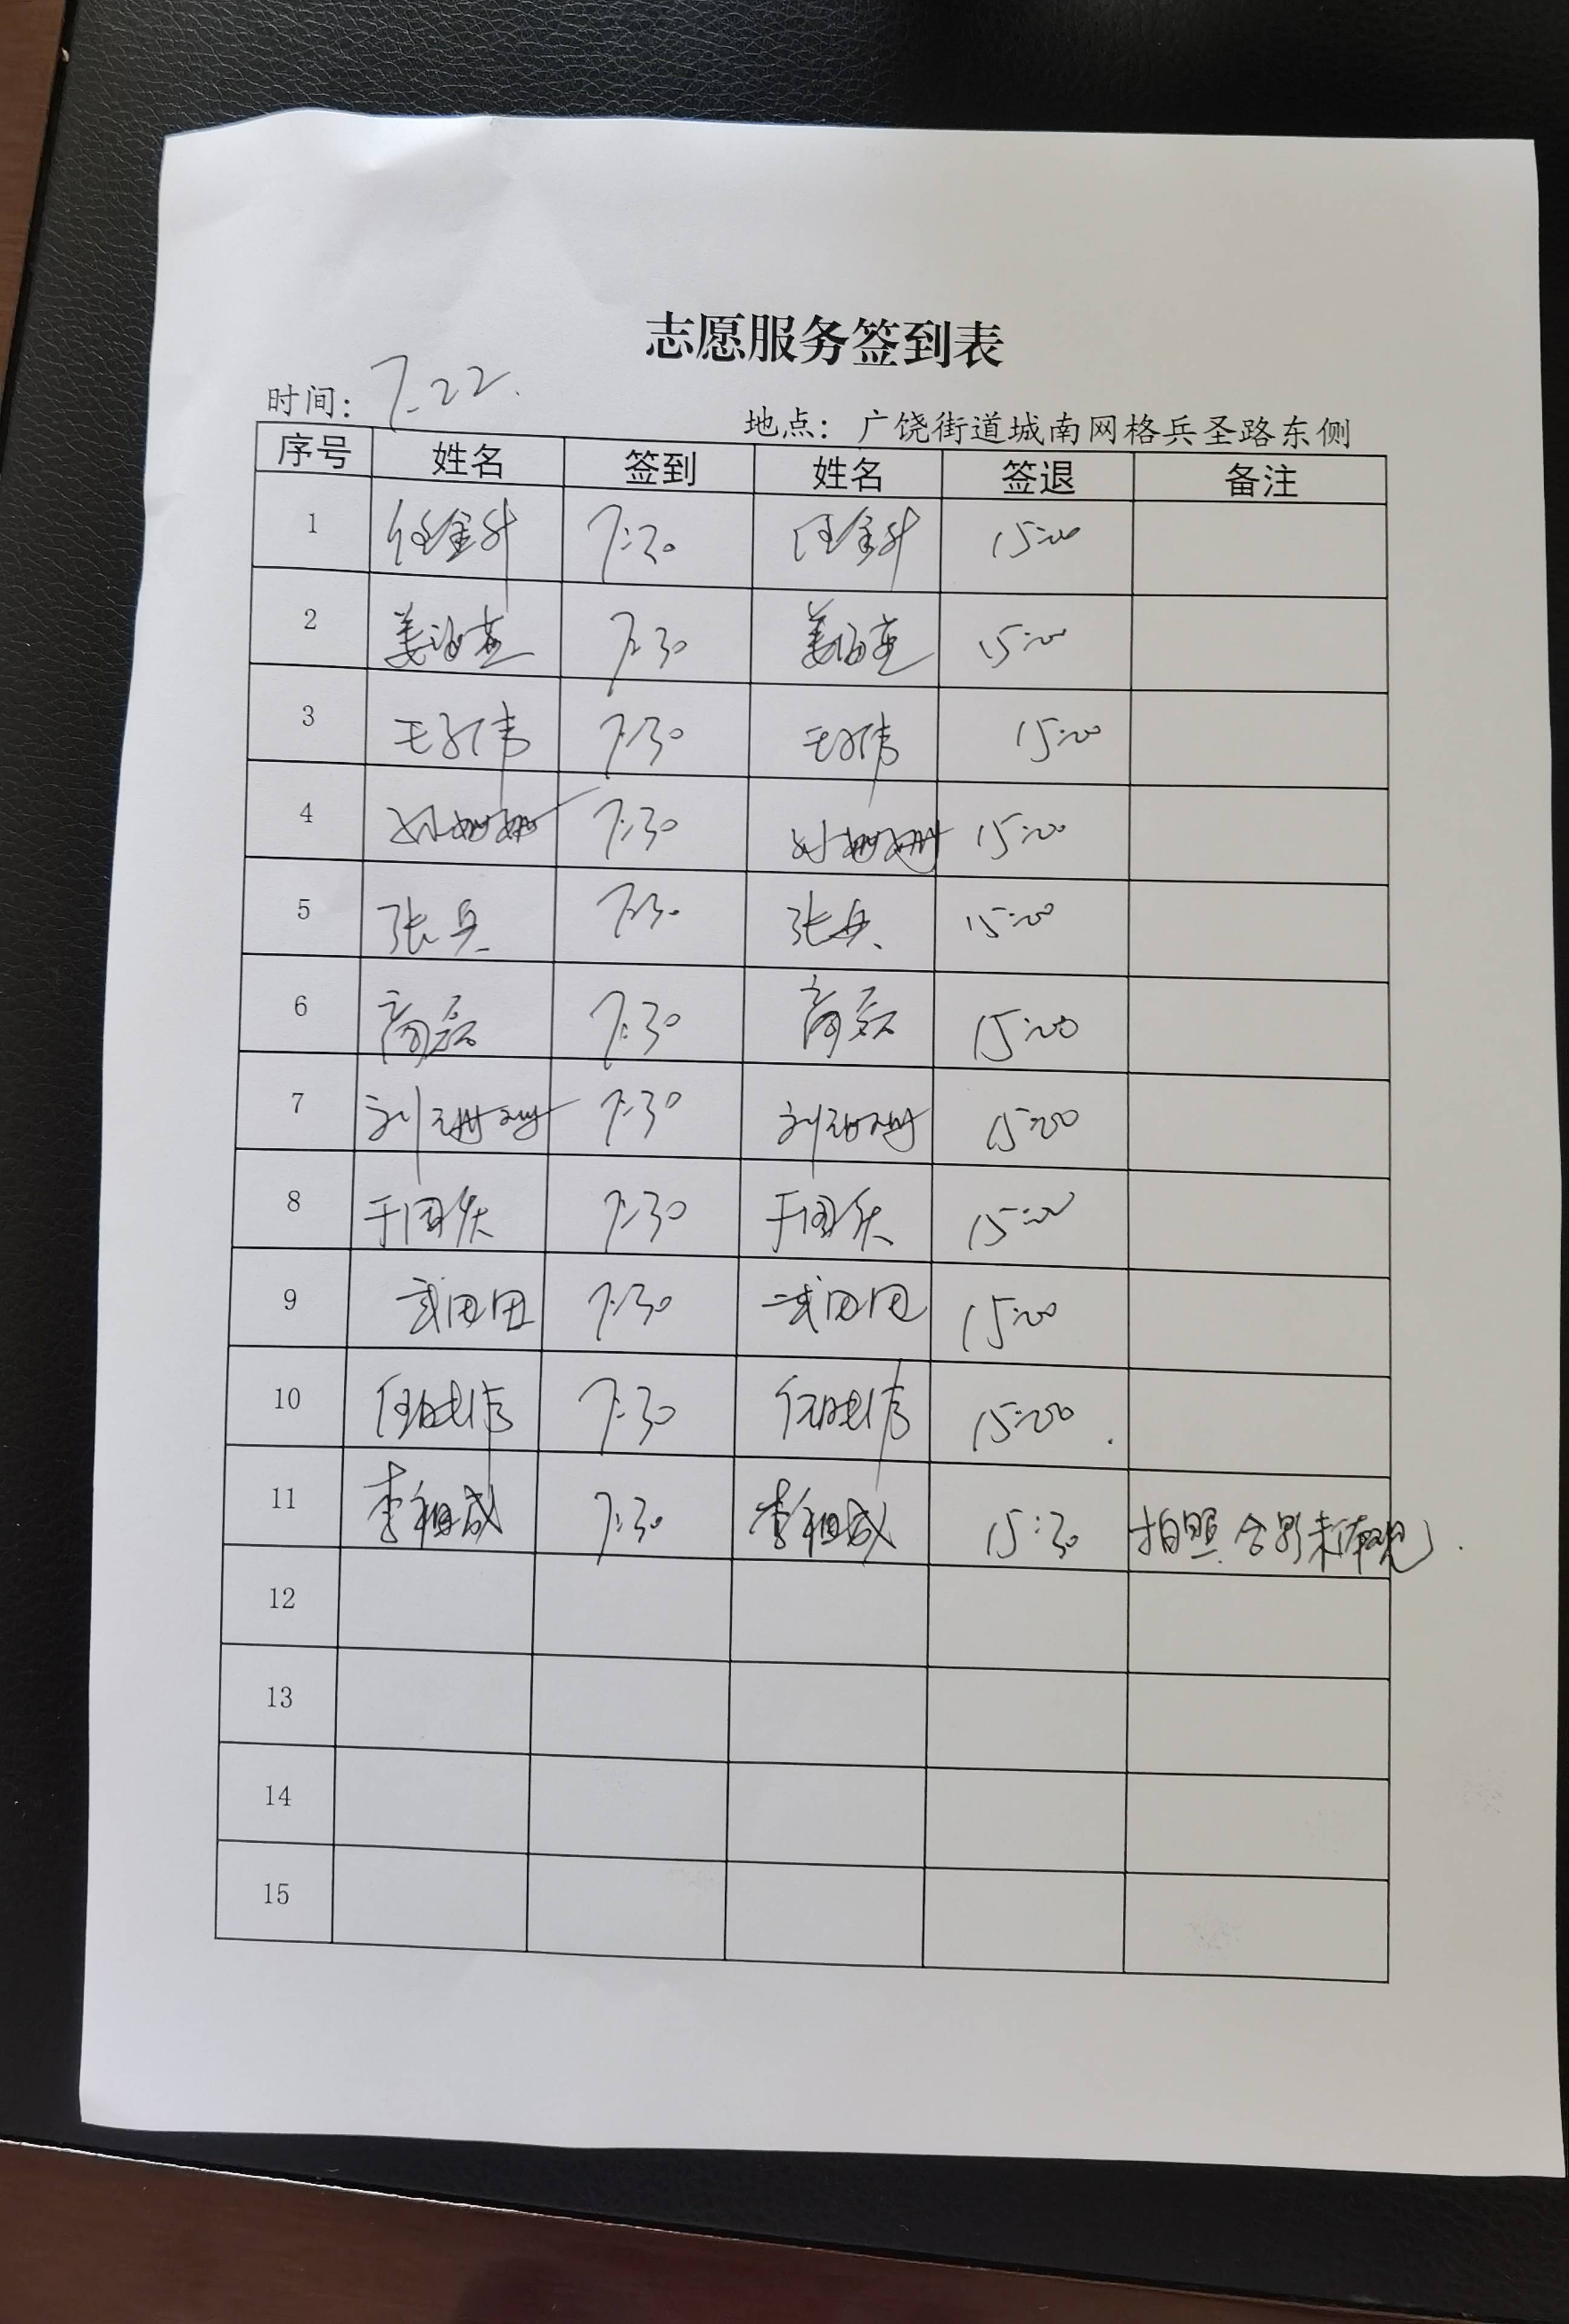 志愿服务签到表
时间: 7.22.
地点: 广饶街道城南网格兵圣路东侧
序号 姓名 签到 姓名 签退 备注
1 任金升 7:30 任金升 15:00
2 姜海燕 7:30 姜海燕 15:00
3 7:30 15:00
4 孙姗姗 7:30 孙姗姗 15:00
5 张兵 7:30 张兵 15:00
6 商磊 7:30 商磊 15:00
7 刘珊珊 7:30 刘珊珊 15:00
8 于国庆 7:30 于国庆 15:00
9 武田田 7:30 武田田 15:00
10 7:30 15:00
11 李祖威 7:30 李祖威 15:30 拍照,合影未体现.
12
13
14
15